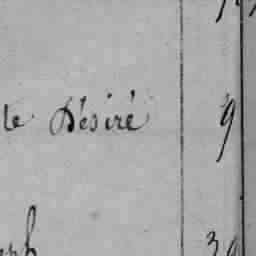 le Désiré 9
eph 39